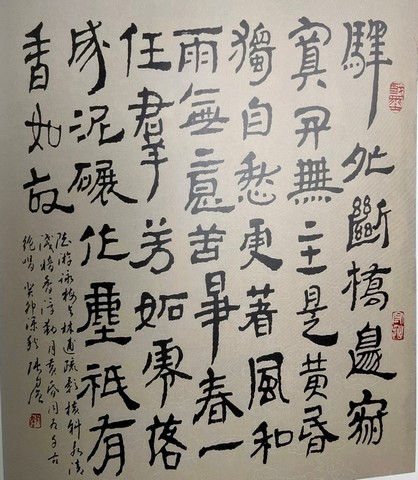 驛外斷橋邊寂
寞开無主是黃昏
獨自愁更著風和
雨無意苦爭春一
任羣芳妒零落
成泥碾作塵祇有
香如故
陸游詠梅与林逋疏影橫斜水清
淺暗香浮動月黃昏同為千古
絕唱 癸卯深秋